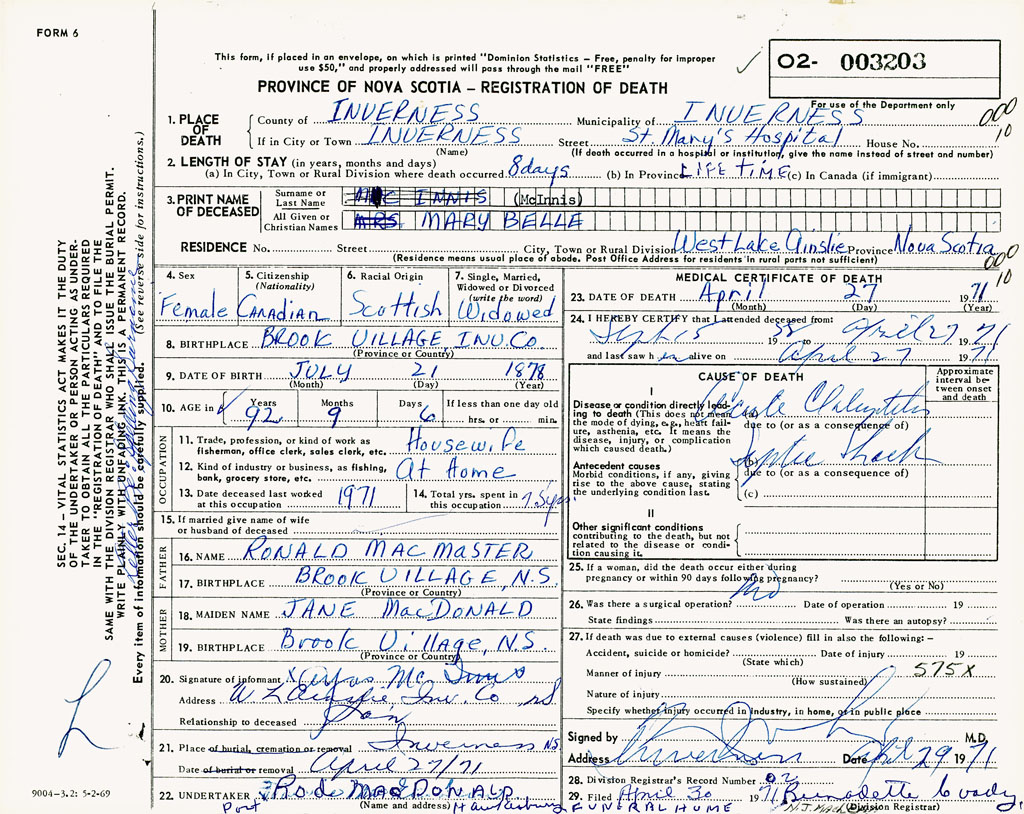 FORM 6
This form, if placed in an envelope, on which is printed "Dominion Statistics – Free, penalty for improper
use $50," and properly addressed will pass through the mail "FREE"
02- 003203
PROVINCE OF NOVA SCOTIA – REGISTRATION OF DEATH
For use of the Department only
000
10
1. PLACE OF DEATH
County of INVERNESS Municipality of INVERNESS
If in City or Town INVERNESS Street St. Mary's Hospital House No.
(Name) (If death occurred in a hospital or institution, give the name instead of street and number)
2. LENGTH OF STAY (in years, months and days)
(a) In City, Town or Rural Division where death occurred 8 days (b) In Province LIFE TIME (c) In Canada (if immigrant)
3. PRINT NAME OF DECEASED
Surname or Last Name MC INNIS (McInnis)
All Given or Christian Names MRS MARY BELLE
RESIDENCE No. Street City, Town or Rural Division West Lake Ainslie Province Nova Scotia
(Residence means usual place of abode. Post Office Address for residents in rural parts not sufficient)
000
10
4. Sex
Female
5. Citizenship
(Nationality)
Canadian
6. Racial Origin
Scottish
7. Single, Married,
Widowed or Divorced
(write the word)
Widowed
8. BIRTHPLACE BROOK VILLAGE, INV. CO.
(Province or Country)
9. DATE OF BIRTH JULY 21 1878
(Month) (Day) (Year)
10. AGE in Years Months Days If less than one day old
92 9 6 hrs. or min.
OCCUPATION
11. Trade, profession, or kind of work as
fisherman, office clerk, sales clerk, etc. Housewife
12. Kind of industry or business, as fishing,
bank, grocery store, etc. At Home
13. Date deceased last worked
at this occupation 1971
14. Total yrs. spent in
this occupation
15. If married give name of wife
or husband of deceased
FATHER
16. NAME RONALD MACMASTER
17. BIRTHPLACE BROOK VILLAGE, N.S.
(Province or Country)
MOTHER
18. MAIDEN NAME JANE MacDONALD
19. BIRTHPLACE Brook Village, N.S.
(Province or Country)
20. Signature of informant Mc Innis
Address W L Ainslie Inv. Co NS
Relationship to deceased Son
21. Place of burial, cremation or removal Inverness NS
Date of burial or removal April 27/71
22. UNDERTAKER Rod MacDONALD
(Name and address)
Port Hawkesbury FUNERAL HOME
MEDICAL CERTIFICATE OF DEATH
23. DATE OF DEATH April 27 1971
(Month) (Day) (Year)
24. I HEREBY CERTIFY that I attended deceased from:
Sept 15 19 58 to April 27 1971
and last saw h er alive on April 27 1971
CAUSE OF DEATH
Approximate
interval be-
tween onset
and death
I
Disease or condition directly lead-
ing to death (This does not mean
the mode of dying, e.g., heart fail-
ure, asthenia, etc. It means the
disease, injury, or complication
which caused death.)
Acute
due to (or as a consequence of)
Antecedent causes
Morbid conditions, if any, giving
rise to the above cause, stating
the underlying condition last.
(b) Septic Shock
due to (or as a consequence of)
(c)
II
Other significant conditions
contributing to the death, but not
related to the disease or condi-
tion causing it.
25. If a woman, did the death occur either during
pregnancy or within 90 days following pregnancy? No
(Yes or No)
26. Was there a surgical operation? Date of operation 19
State findings Was there an autopsy?
27. If death was due to external causes (violence) fill in also the following: –
Accident, suicide or homicide? Date of injury 19
(State which)
Manner of injury 575X
(How sustained)
Nature of injury
Specify whether injury occurred in industry, in home, or in public place
Signed by M.D.
Address Inverness Date April 29 1971
28. Division Registrar's Record Number 02
29. Filed April 30 1971 Bernadette
(Division Registrar)
SEC. 14 – VITAL STATISTICS ACT MAKES IT THE DUTY
OF THE UNDERTAKER OR PERSON ACTING AS UNDER-
TAKER TO OBTAIN ALL THE PARTICULARS REQUIRED
IN THE "REGISTRATION OF DEATH" AND TO FILE THE
SAME WITH THE DIVISION REGISTRAR WHO SHALL ISSUE THE BURIAL PERMIT.
WRITE PLAINLY WITH UNFADING INK. THIS IS A PERMANENT RECORD.
Every item of information should be carefully supplied. (See reverse side for instructions.)
L
9004-3.2: 5-2-69